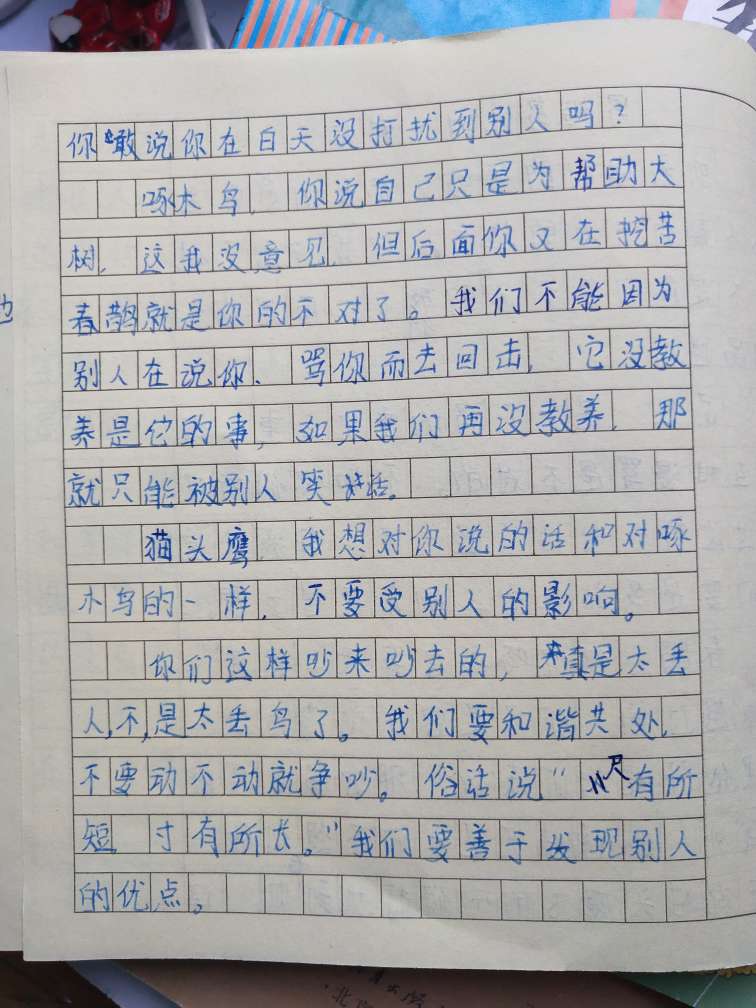 你敢说你在白天没打扰到别人吗？
啄木鸟，你说自己只是为帮助大
树，这我没意见，但后面你又在挖苦
喜鹊就是你的不对了。我们不能因为
别人在说你、骂你而去回击，它没教
养是它的事，如果我们再没教养，那
就只能被别人笑话。
猫头鹰，我想对你说的话和对啄
木鸟的一样，不要受别人的影响。
你们这样吵来吵去的，真是太丢
人，不，是太丢鸟了。我们要和谐共处，
不要动不动就争吵。俗话说“尺有所
短，寸有所长。”我们要善于发现别人
的优点。